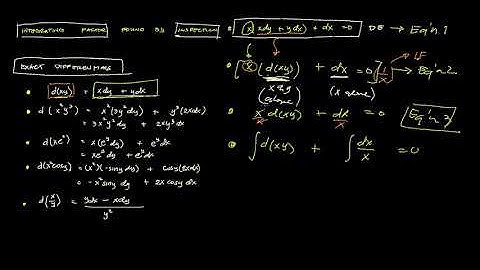 INTEGRATING FACTOR FOUND BY INSPECTION
EXACT DIFFERENTIALS
• d(xy) = xdy + ydx
• d(x²y³) = x²(3y²dy) + y³(2xdx)
= 3x²y²dy + 2xy³dx
• d(xeʸ) = x(eʸdy) + eʸdx
= xeʸdy + eʸdx
• d(x²cosy) = (x²)(-siny dy) + cosy(2xdx)
= -x²siny dy + 2x cosy dx
• d(x/y) = (ydx - xdy) / y²
• x(xdy + ydx) + dx = 0 DE → Eq'n 1
IF
• [x(d(xy)) + dx = 0] 1/x → Eq'n 2
(x & y alone) (x alone)
• x d(xy)/x + dx/x = 0 Eq'n 3
• ∫d(xy) + ∫dx/x = 0